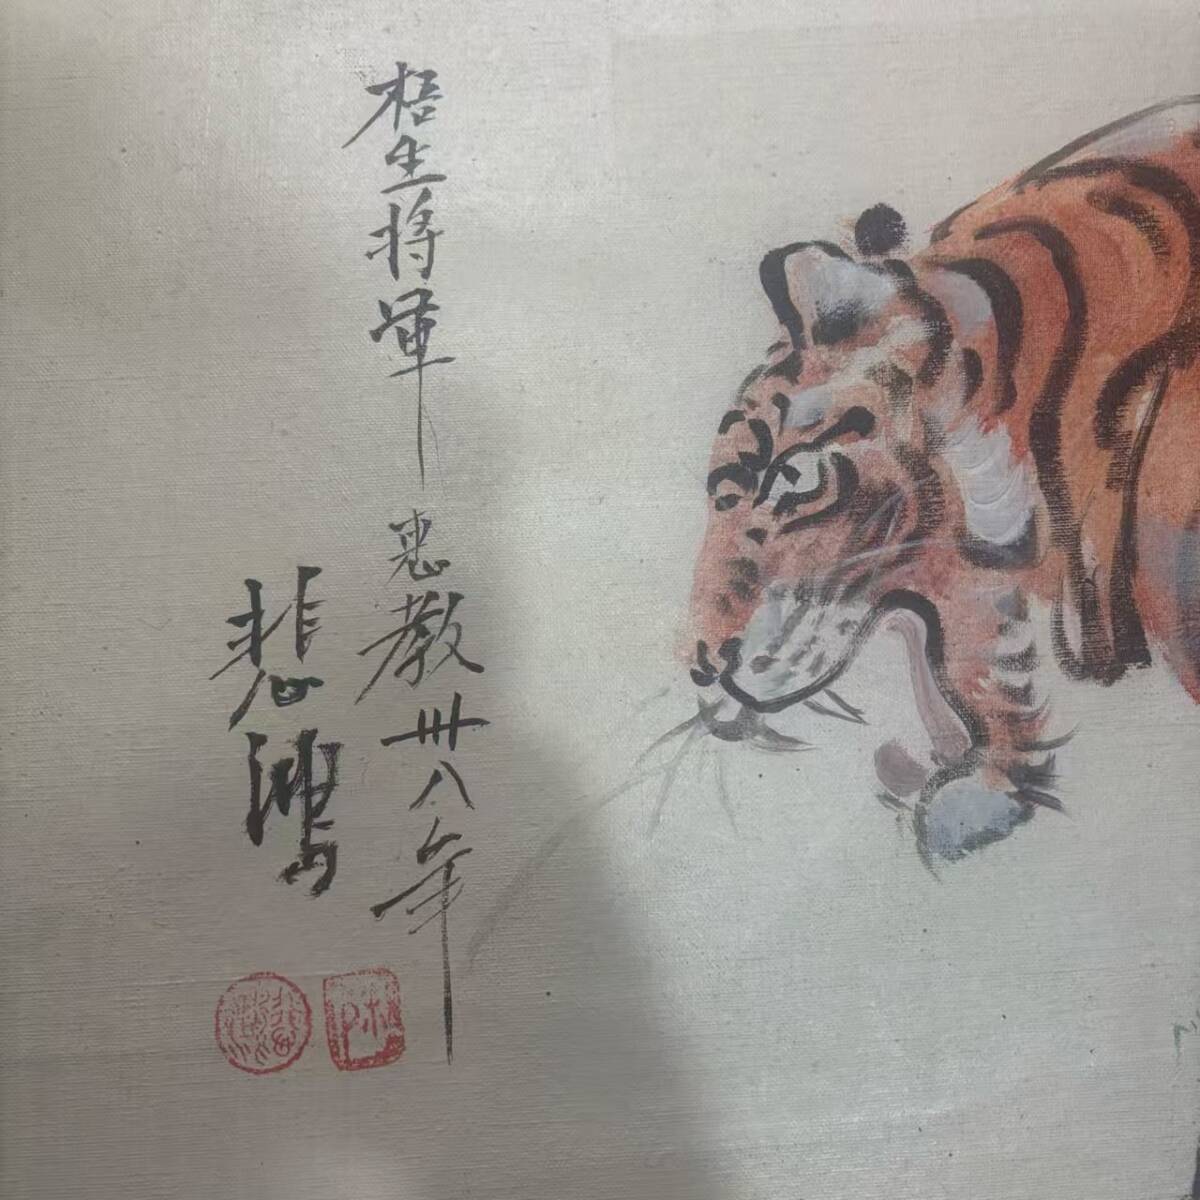 梧生将軍
惠教卅八年
悲鴻